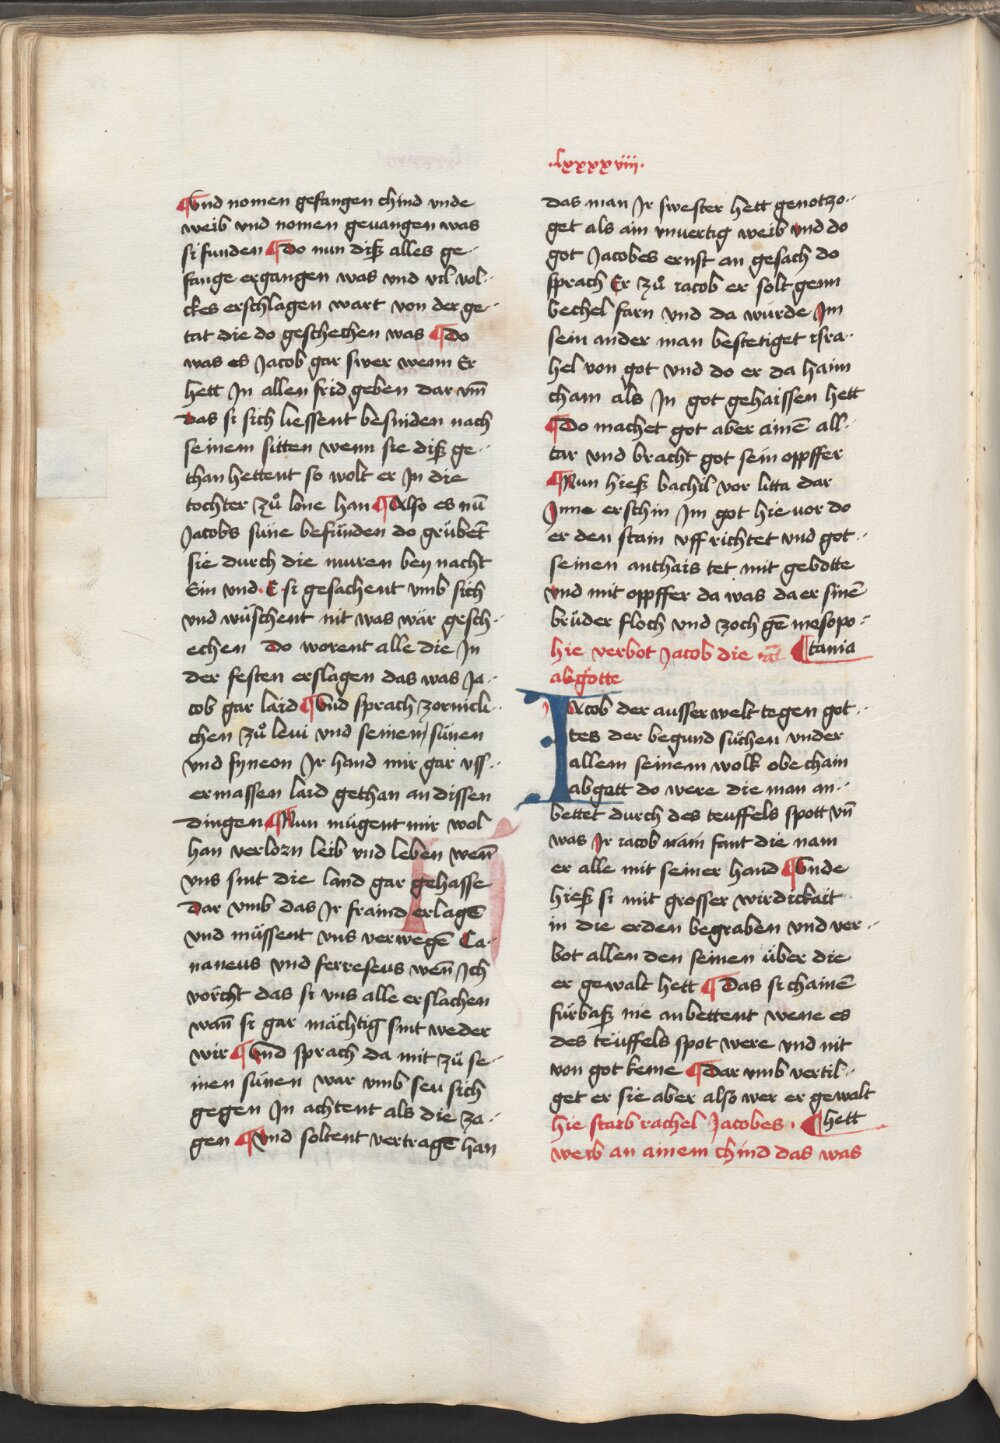 ·lxxxxviii·
¶Vnd nomen gefangen chind vnde
weib vnd nomen geuangen was
si funden ¶Do nun disz alles ge-
fange ergangen was vnd vil vol-
ckes erschlagen wart von der ge-
tat die do geschechen was ¶Do
was es Jacob gar swer wenn Er
hett Jn allen frid geben dar vm̄
das si sich liessent besniden nach
seinem sitten wenn sie disz ge-
than hettent so wolt er Jn die
tochter zů lone han ¶Also es nū
Jacobs süne befunden do grübēt
sie durch die muren bey nacht
Ein vnd · E si gesachent vmb sich
vnd wüschent nit was wär gesch-
echen Do worent alle die Jn
der festen erslagen das was Ja-
cob gar laid ¶Vnd sprach zornicli-
chen zů leui vnd seinem sünen
vnd symeon Jr hand mir gar vss-
ermassen laid gethan an dissen
dingen ¶Nun mügent mir wol
han verlorn leib vnd leben wen̄
vns sint die land gar gehasse
Dar vmb das Jr fraind erlagē
vnd müssent vns verwegē Ca-
naneus vnd ferreseus wen̄ Jch
vörcht das si vns alle erslachen
wan̄ si gar mächtig sint weder
wir ¶Vnd sprach da mit zü se-
inen sünen war vmb seu sich
gegen Jn achtent als die za-
gen ¶Vnd soltent vertragē han
das man Jr swester hett genotzo-
get als ain vnuertig weib vnd do
got Jacobes ernst an gesach do
sprach Er zů iacob er solt genn
bechel farn vnd da würde Jm
sein ander man bestetiget isra-
hel von got vnd do er da haim
cham als Jn got gehaissen hett
¶Do machet got aber ainē all-
tar vnd bracht got sein oppffer
¶Nun hiesz bachil vor litta dar
Jnne erschin Jm got hie vor do
er den stain vff richtet vnd got-
seinen anthais tet mit gebotte
vnd mit oppffer da was da er sinē
brüder floch vnd zoch gē mesopo-
hie verbot Jacob die ¶tania
abgötte
Iacob der ausser welt tegen got-
tes der begund süchen vnder
allem seinem wolk obe chain
abgott do were die man an-
bettet durch des teuffels spott vn̄
was Jr iacob näm fant die nam
er alle mit seiner hand ¶Vnde
hiesz si mit grosser wirdickait
in die erden begraben vnd ver-
bot allen den seinen über die
er gewalt hett ¶Das si chainē
fürbasz nie anbettent wene es
des teüffels spot were vnd nit
von got keme ¶Dar vmb vertil-
get er sie aber also wer er gewalt
hie starb rachel Jacobes · ¶hett
weib an ainem chind das was